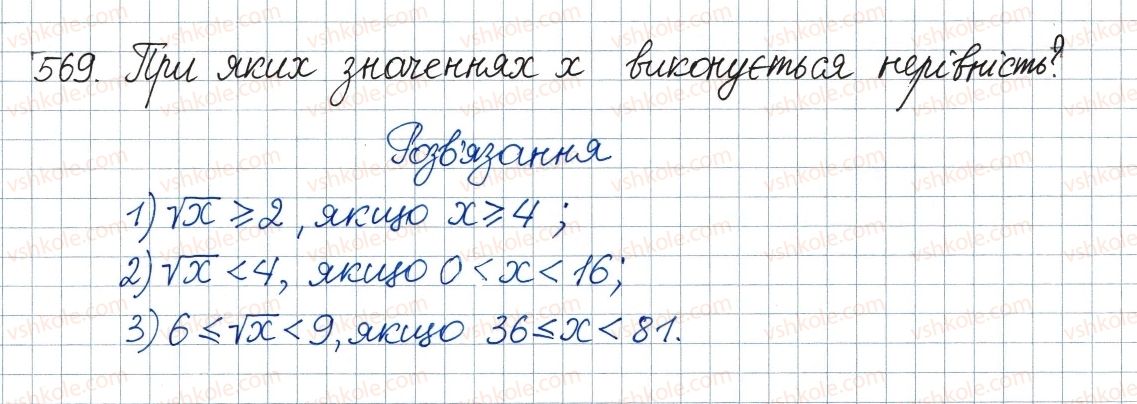 569. При яких значеннях x виконується нерівність?
Розв'язання
1) √x ≥ 2, якщо x ≥ 4;
2) √x < 4, якщо 0 < x < 16;
3) 6 ≤ √x < 9, якщо 36 ≤ x < 81.